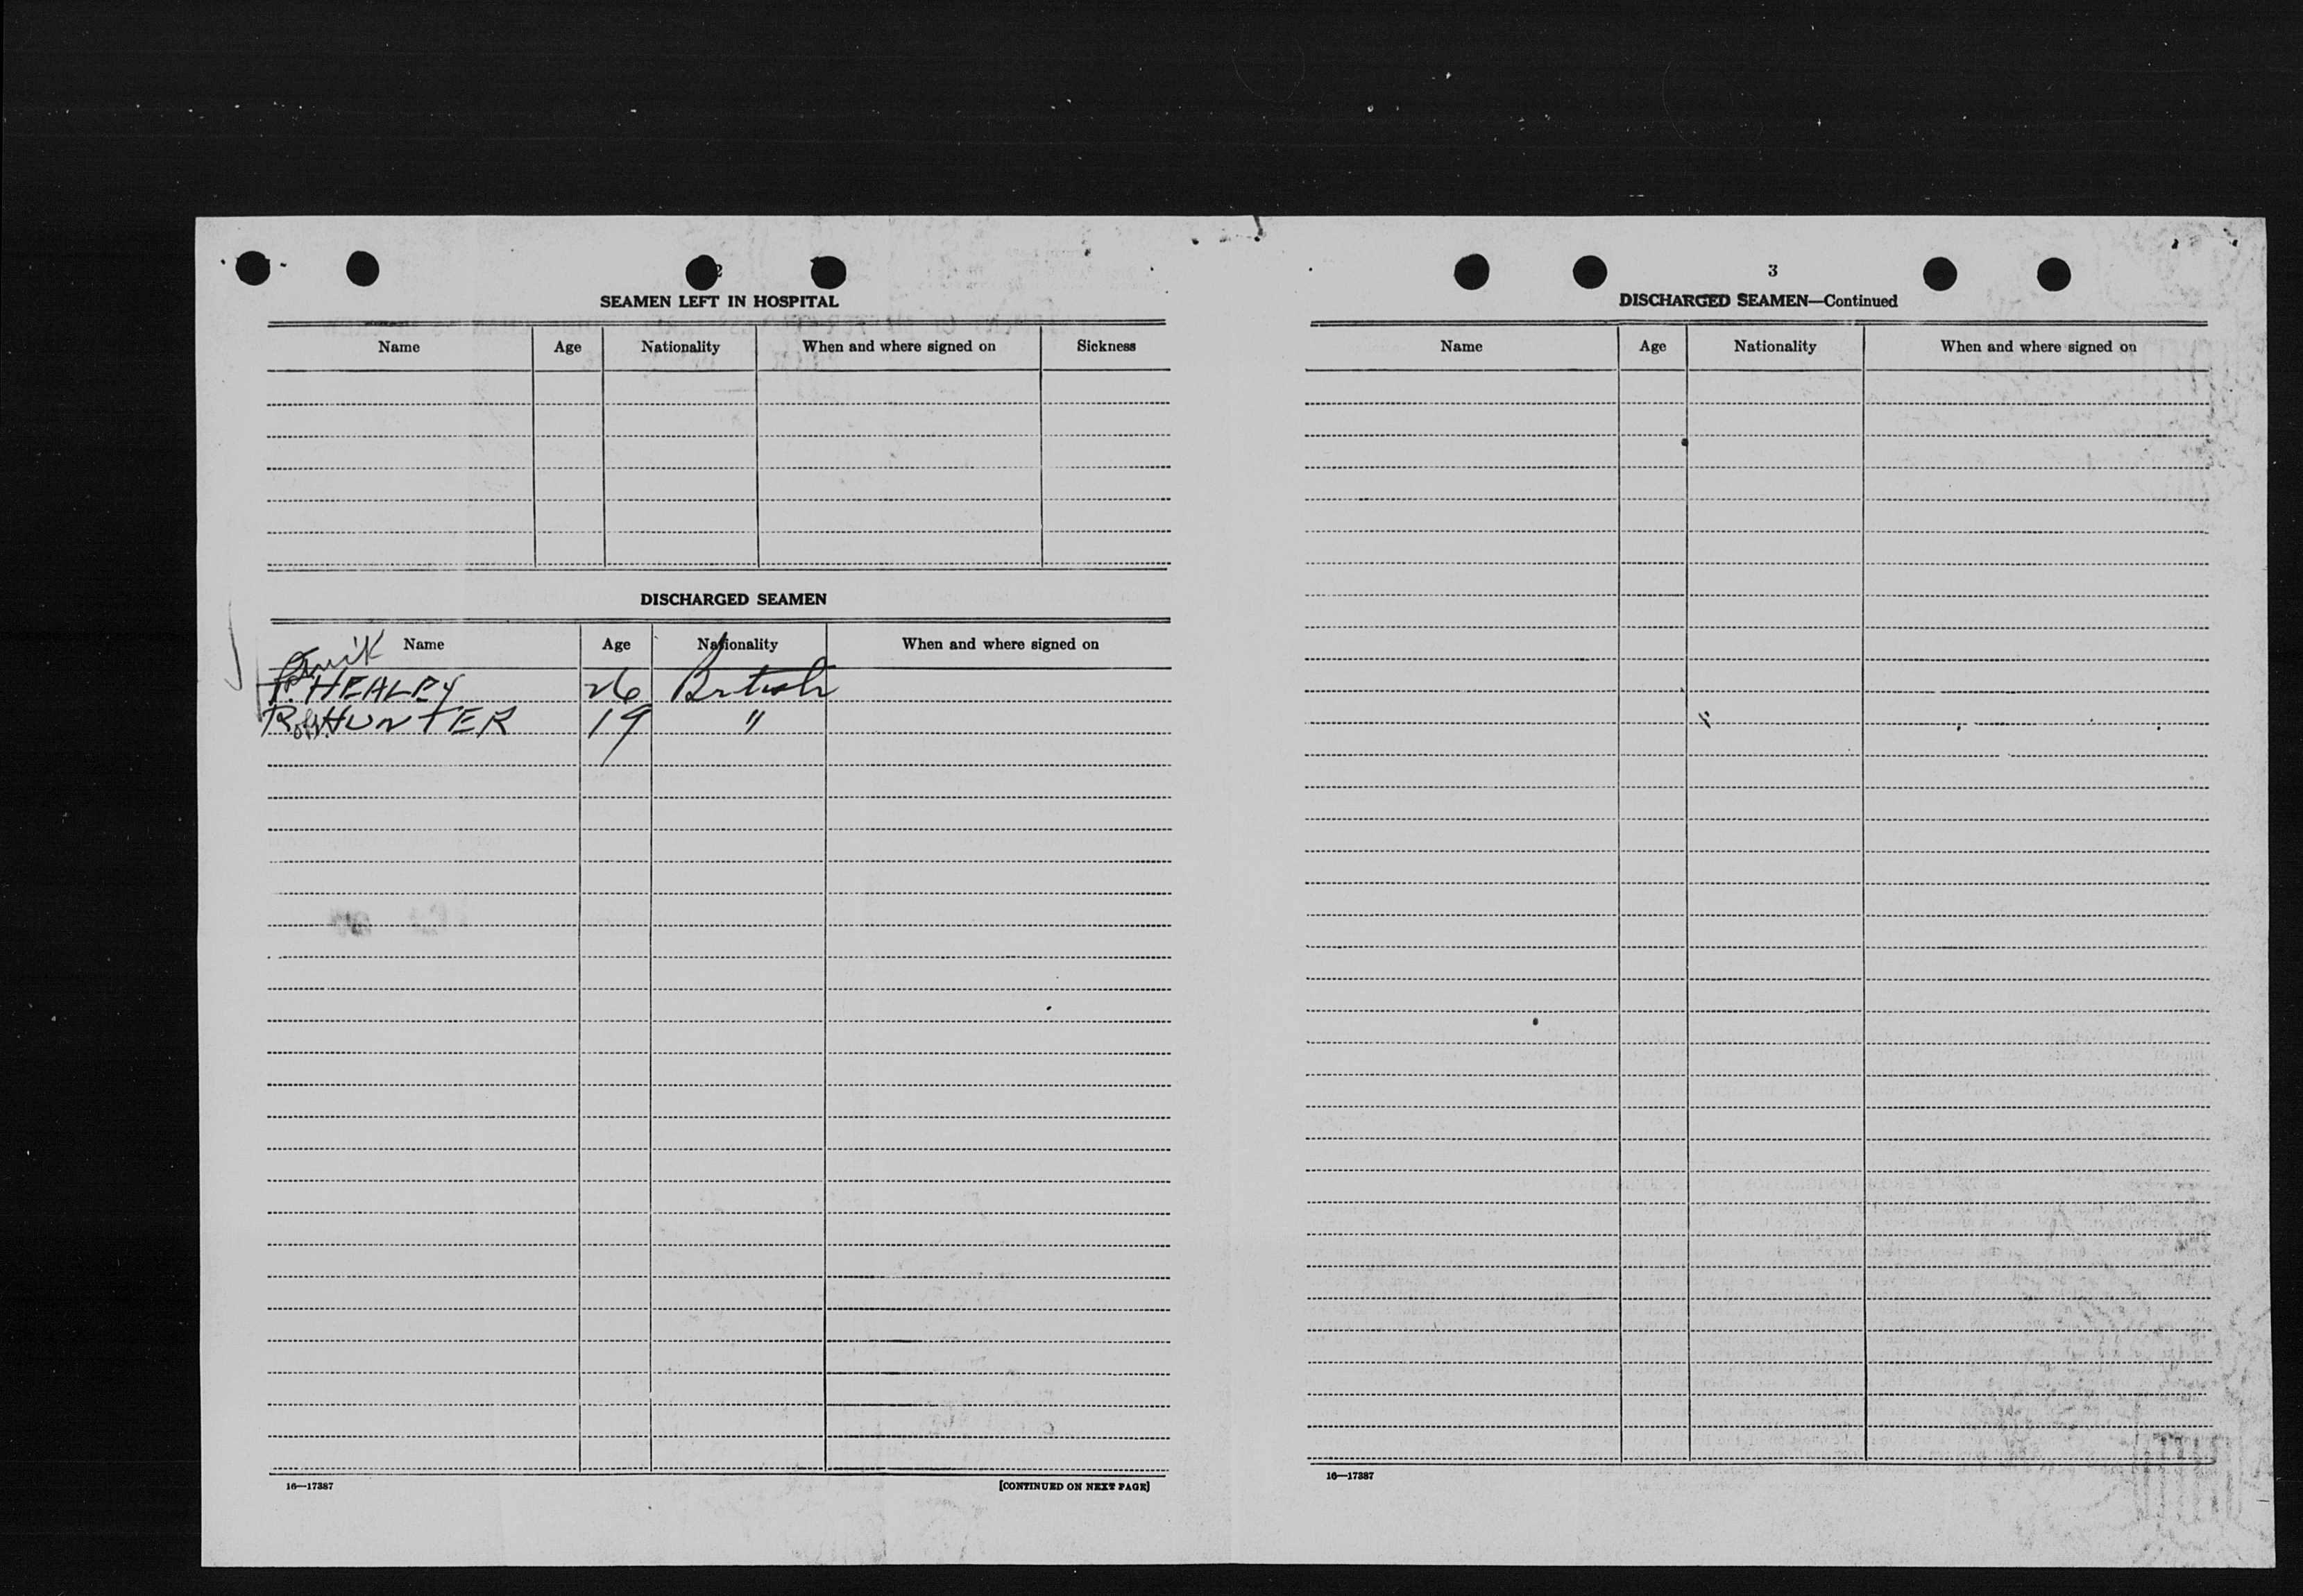 2
SEAMEN LEFT IN HOSPITAL
Name Age Nationality When and where signed on Sickness
DISCHARGED SEAMEN
Name Age Nationality When and where signed on
HEALEY 26 British
R. HUNTER 19 "
16—17387 [CONTINUED ON NEXT PAGE]
3
DISCHARGED SEAMEN—Continued
Name Age Nationality When and where signed on
16—17387